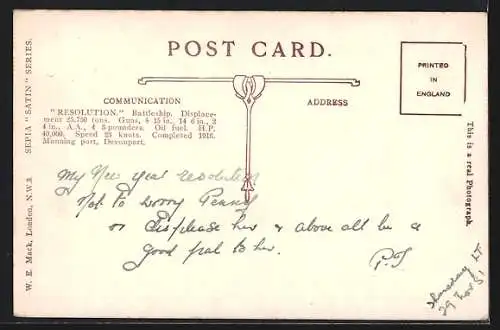 POST CARD.
PRINTED
IN
ENGLAND
COMMUNICATION
ADDRESS
"RESOLUTION." Battleship. Displace-
ment 25,750 tons. Guns, 8 15 in., 14 6 in., 2
4 in., A.A., 4 3-pounders. Oil fuel. H.P.
40,000. Speed 23 knots. Completed 1916.
Manning port, Devonport.
My New Year resolution
Not to worry Penny
or displease her & above all be a
good pal to her.
Thursday
29 Nov 51
This is a real Photograph.
W. E. Mack, London, N.W.3 SEPIA "SATIN" SERIES.